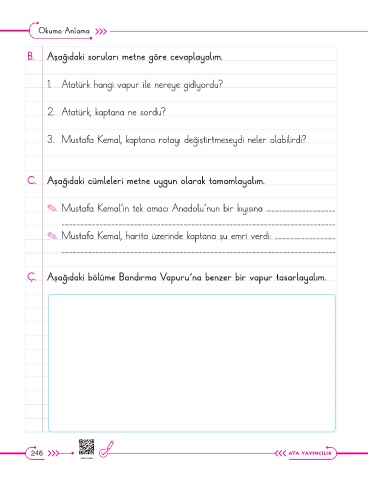 Okuma Anlama
B. Aşağıdaki soruları metne göre cevaplayalım.
1. Atatürk hangi vapur ile nereye gidiyordu?
2. Atatürk, kaptana ne sordu?
3. Mustafa Kemal, kaptana rotayı değiştirtmeseydi neler olabilirdi?
C. Aşağıdaki cümleleri metne uygun olarak tamamlayalım.
Mustafa Kemal'in tek amacı Anadolu'nun bir kıyısına
Mustafa Kemal, harita üzerinde kaptana şu emri verdi:
Ç. Aşağıdaki bölüme Bandırma Vapuru'na benzer bir vapur tasarlayalım.
246
ATA YAYINCILIK